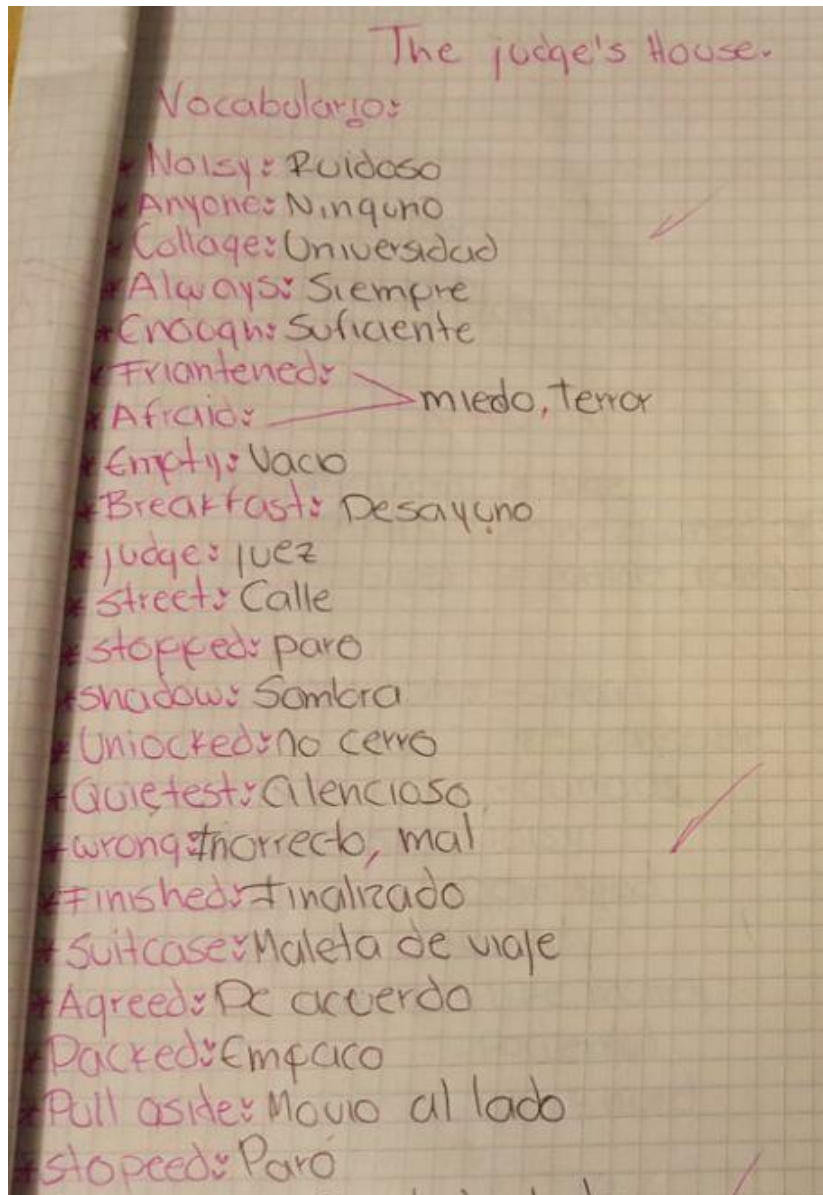 The judge's House.
Vocabulario:
* Noisy: Ruidoso
* Anyone: Ninguno
* Collage: Universidad
* Always: Siempre
* Enoogh: Suficiente
* Friantened:
* Afraid: miedo, Terror
* Empty: Vacio
* Breakfast: Desayuno
* judge: juez
* Street: Calle
* stopped: paro
* shadow: Sombra
* Uniocked: no cerro
* Quietest: Cilencioso
* wrong: Inorrecto, mal
* Finished: Finalizado
* Suitcase: Maleta de viaje
* Agreed: De acuerdo
* Packed: Empaco
* Pull aside: Movio al lado
* stopeed: Paró